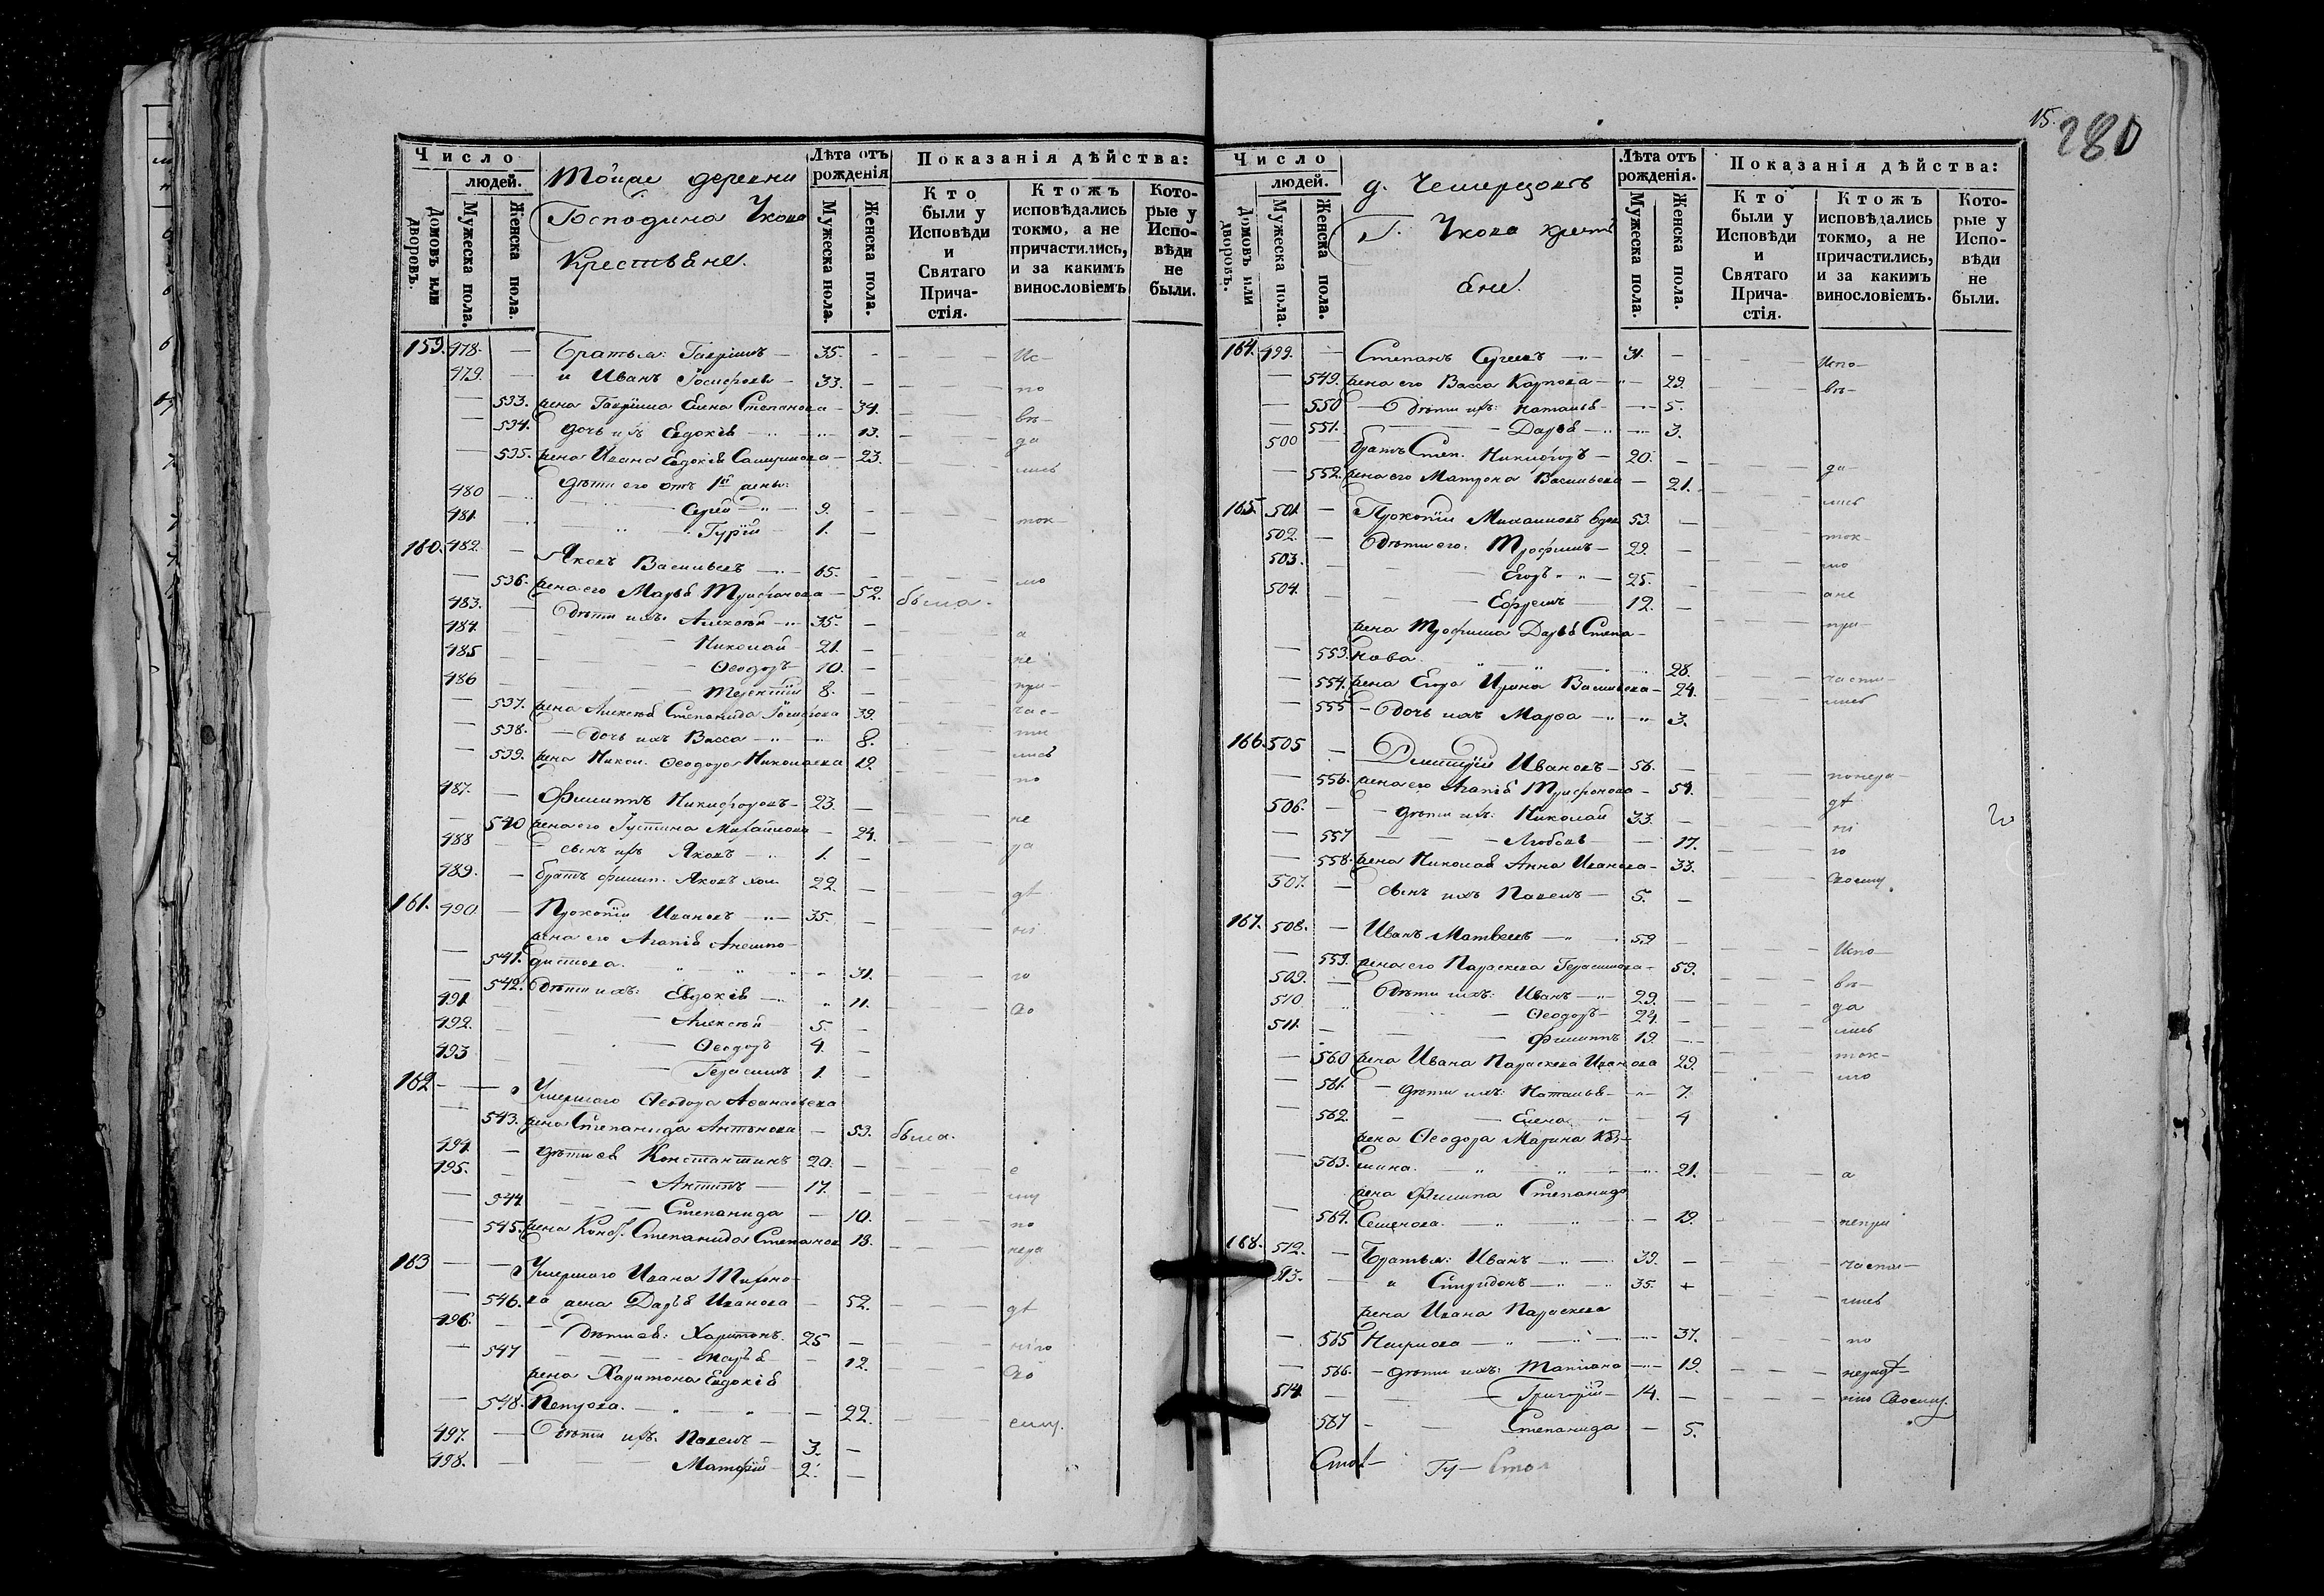 15.
280
Число
людей.
Домовъ или дворовъ.
Мужеска пола.
Женска пола.
Тойже деревни
Господина Укова
Крестьяне.
Лѣта отъ рожденія
Мужеска пола.
Женска пола.
Показанія дѣйства:
Кто были у Исповѣди и Святаго Прича-стія.
Ктожъ исповѣдались токмо, а не причастились, и за какимъ винословіемъ
Кото-рые у Испо-вѣди не были.
159. 478. Братья: Гавріилъ 35. Ис-
479. и Иванъ Іосифовы 33. по
533. жена Гавріила Елена Степанова 34. вѣ-
534. дочь ихъ Евдокія 13. да
535. жена Ивана Евдокія 23. лись
дѣти его отъ 1й жены:
480 Сергій 9. ток-
481. Гурій 1.
160. 482. Яковъ Васильевъ 65. мо
536. жена его Марья Трифонова 52. была.
483. Дѣти ихъ: Алексѣй 35. а
484. Николай 21. не
485 Ѳеодоръ 10. при-
486 Терентій 8.
537. жена Алексѣя Степанида Іосифова 39. час-
538. дочь ихъ Васса 8. ти
539. жена Никол. Ѳеодора Николаева 19. лись
487. Филиппъ Никифоровъ 23. по
540 жена его Іустина Михайлова 24. не
488 сынъ ихъ Яковъ 1. ра
489. братъ Филип. Яковъ хол. 22. дѣ
161. 490. Прокопій Ивановъ 35. ні
жена его Агапія Анемпо-
541. дистова. 31. ю
542. Дѣти ихъ: Евдокія 11. сво
491. Алексѣй 5.
492. Ѳеодоръ 4.
493 Герасимъ 1.
162 Умершаго Ѳеодора Аѳанасьева
543. жена Степанида Антонова 53. была.
494. дѣти ея Константинъ 20. е
495. Антипъ 17. му
544 Степанида 10. по
545. жена Конст. Степанида Степанов. 18. нера
163 Умершаго Ивана Тихоно-
546. ва жена Дарья Иванова 52. дѣ
496. Дѣти ея: Харитонъ 25 нію
547 Марья 12. сво
жена Харитона Евдокія
548. Петрова. 22. ему.
497. Дѣти ихъ: Павелъ 3.
498. Матѳій 2.
Число
людей.
Домовъ или дворовъ.
Мужеска пола.
Женска пола.
д. Чемерцовъ
Г. Укова кресть
яне.
Лѣта отъ рожденія.
Мужеска пола.
Женска пола.
Показанія дѣйства:
Кто были у Исповѣди и Святаго Прича-стія.
Ктожъ исповѣдались токмо, а не причастились, и за какимъ винословіемъ.
Кото-рые у Испо-вѣди не были.
164. 499. Степанъ Сергеевъ 31. Испо-
549. жена его Васса Карпова 29. вѣ-
550 Дѣти ихъ: Наталья 5.
551. Дарья 3.
500 братъ Степ. Никифоръ 20. да-
552. жена его Матрона Васильева 21. лись
165. 501. Прокопій Михаиловъ вдов 53. ток-
502. Дѣти его: Трофимъ 29. мо
503. Егоръ 25. ане
504. Ефремъ 12. при-
жена Трофима Дарья Степа-
553. нова. 28. части-
554. жена Егора Ирина Васильева 24. лись
555 Дочь ихъ Марѳа 3.
166. 505 Дмитрій Ивановъ 56. понера-
556. жена его Агапія Трифонова 54. дѣ
506. дѣти ихъ: Николай 33. ні
557 Любовь 17. ю
558. жена Николая Анна Иванова 33. своему.
507. сынъ ихъ Павелъ 5.
167. 508. Иванъ Матвеевъ 59 Испо-
559. жена его Параскева Герасимова 59. вѣ-
509. Дѣти ихъ: Иванъ 29. да
510 Ѳеодоръ 24. лись
511. Филиппъ 19. ток-
560 жена Ивана Параскева Иванова 29. мо
561. дѣти ихъ: Наталья 7.
562. Елена 4
жена Ѳеодора Марина Кузь-
563. мина. 21. а
жена Филипа Степанида
564. Семенова. 19. непри
168. 512. Братья: Иванъ 39. части-
513. и Спиридонъ 35. + лись
жена Ивана Параскева
565 37. по
566. дѣти ихъ: Татіана 19. нерадѣ-
514 Григорій 14. нію своему.
567 Степанида 5.